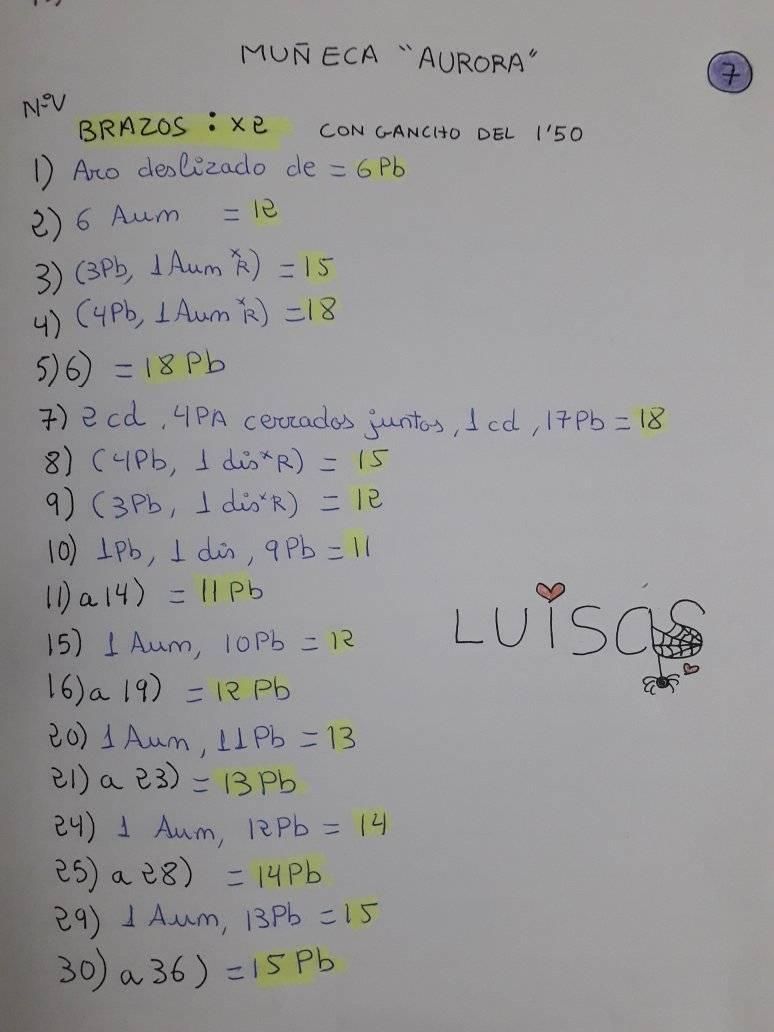 MUÑECA "AURORA"
7
NºV
BRAZOS : x2 CON GANCHO DEL 1'50
1) Aro deslizado de = 6Pb
2) 6 Aum = 12
3) (3Pb, 1Aum xR) = 15
4) (4Pb, 1Aum xR) = 18
5)6) = 18Pb
7) 2cd, 4PA cerrados juntos, 1cd, 17Pb = 18
8) (4Pb, 1 dis xR) = 15
9) (3Pb, 1 dis xR) = 12
10) 1Pb, 1 dis, 9Pb = 11
11) a 14) = 11Pb
15) 1 Aum, 10Pb = 12
16) a 19) = 12Pb
20) 1 Aum, 11Pb = 13
21) a 23) = 13Pb
24) 1 Aum, 12Pb = 14
25) a 28) = 14Pb
29) 1 Aum, 13Pb = 15
30) a 36) = 15Pb
LUISAS